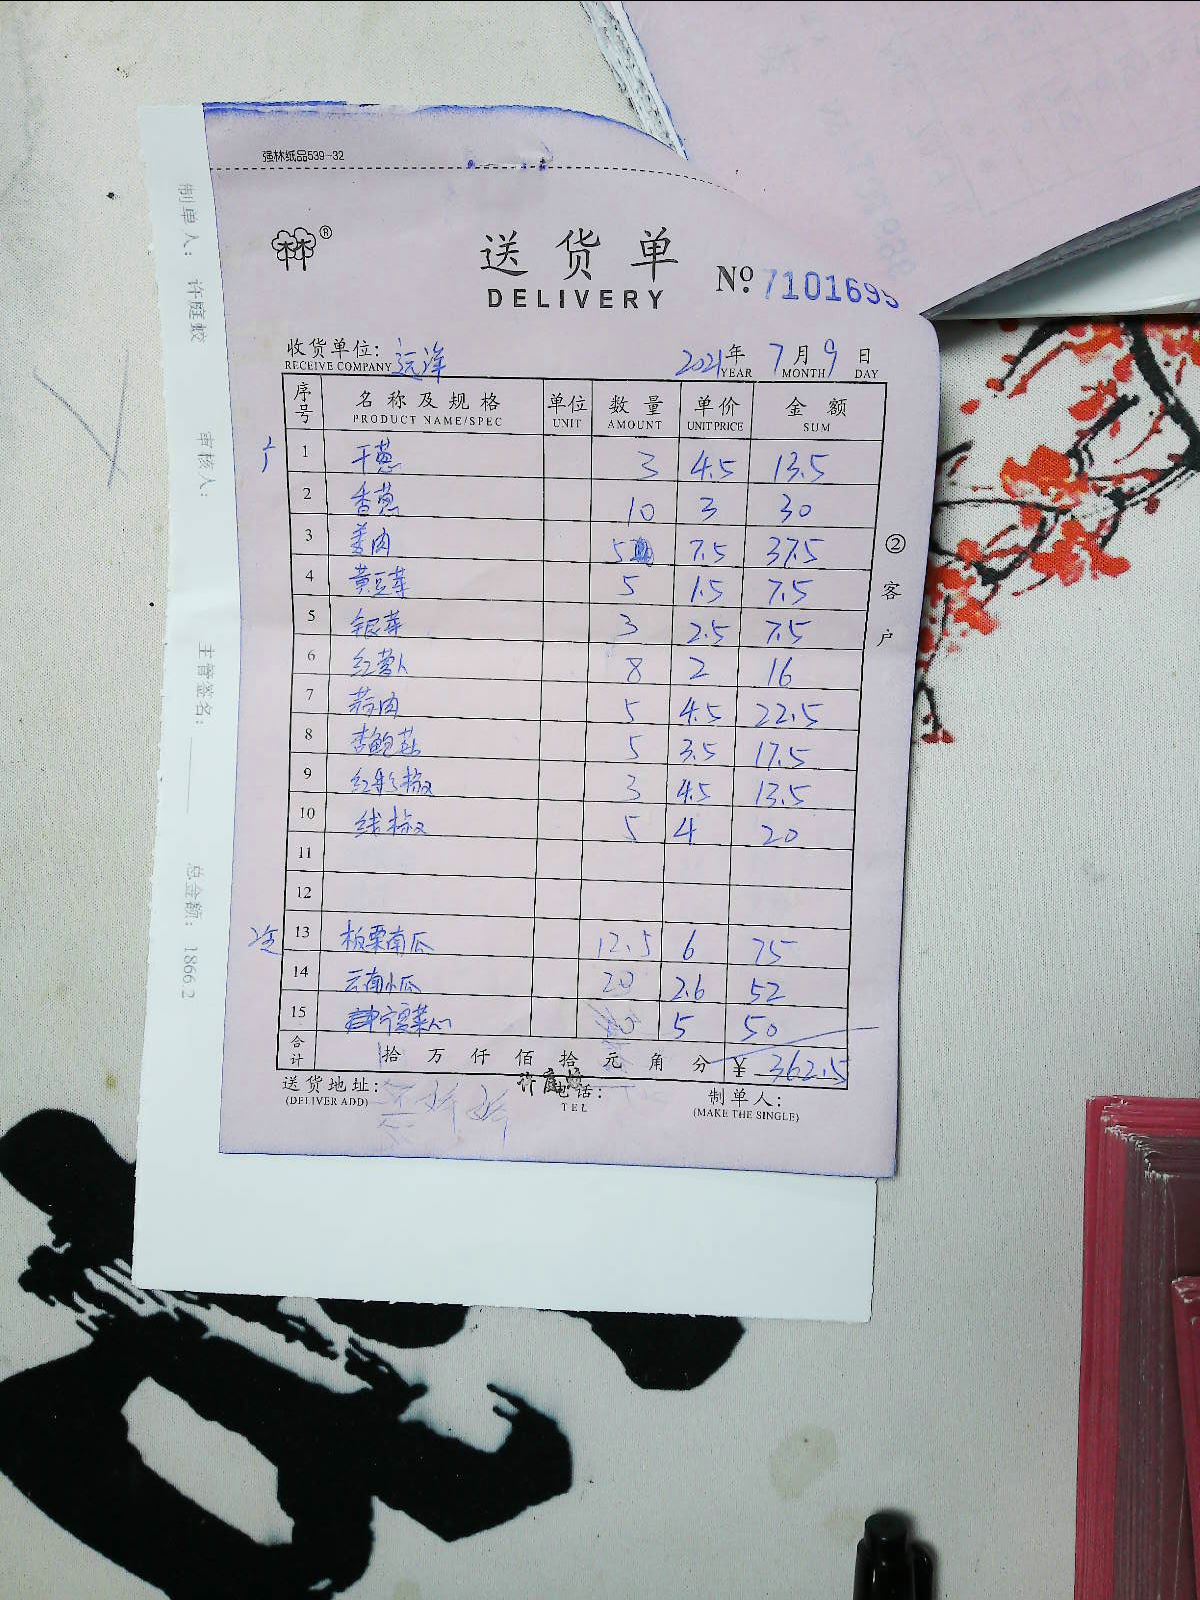 强林纸品539-32
林®
送货单
DELIVERY
№ 7101695
收货单位: 远洋
RECEIVE COMPANY
2021年 7月 9日
YEAR MONTH DAY
序号 名称及规格 单位 数量 单价 金额
PRODUCT NAME/SPEC UNIT AMOUNT UNIT PRICE SUM
1 干葱 3 4.5 13.5
2 香葱 10 3 30
3 姜肉 5 7.5 37.5
4 黄豆芽 5 1.5 7.5
5 银芽 3 2.5 7.5
6 红萝卜 8 2 16
7 蒜肉 5 4.5 22.5
8 杏鲍菇 5 3.5 17.5
9 红彩椒 3 4.5 13.5
10 线椒 5 4 20
11
12
13 板栗南瓜 12.5 6 75
14 云南小瓜 20 2.6 52
15 5 50
合计 拾 万 仟 佰 拾 元 角 分 ¥ 362.5
送货地址:
(DELIVER ADD)
许庭蛟
电话:
TEL
制单人:
(MAKE THE SINGLE)
②客户
制单人: 许庭蛟
审核人:
主管签名:
总金额: 1866.2